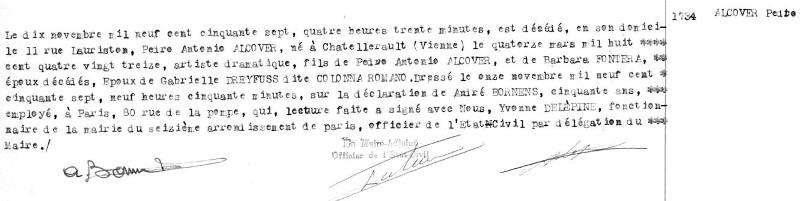 1734 ALCOVER Pedro
Le dix novembre mil neuf cent cinquante sept, quatre heures trente minutes, est décédé, en son domici-
le 11 rue Lauriston, Pedro Antonio ALCOVER, né à Chatellerault (Vienne) le quatorze mars mil huit ****
cent quatre vingt treize, artiste dramatique, fils de Pedro Antonio ALCOVER, et de Barbara FONTERA, ***
époux décédés, Epoux de Gabrielle DREYFUSS dite COLONNA ROMANO.Dressé le onze novembre mil neuf cent *
cinquante sept, neuf heures cinquante minutes, sur la déclaration de André BORNENS, cinquante ans, ***
employé, à Paris, 80 rue de la pompe, qui, lecture faite a signé avec Nous, Yvonne DELÉPINE, fonction-
naire de la mairie du seizième arrondissement de paris, officier de l'Etat Civil par délégation du ***
Maire./
Le Maire-Adjoint
Officier de l'Etat Civil